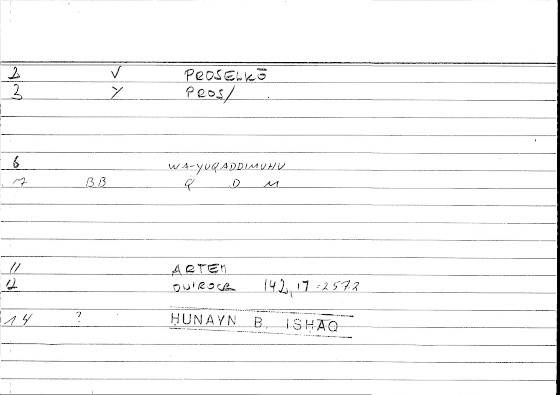 2 V PROSELKŌ
3 Y PROS/
6 WA-YUQADDIMUHU
7 BB Q D M
11 ARTEM
12 142,17=2572
14 ? ḤUNAYN B. ISḤĀQ